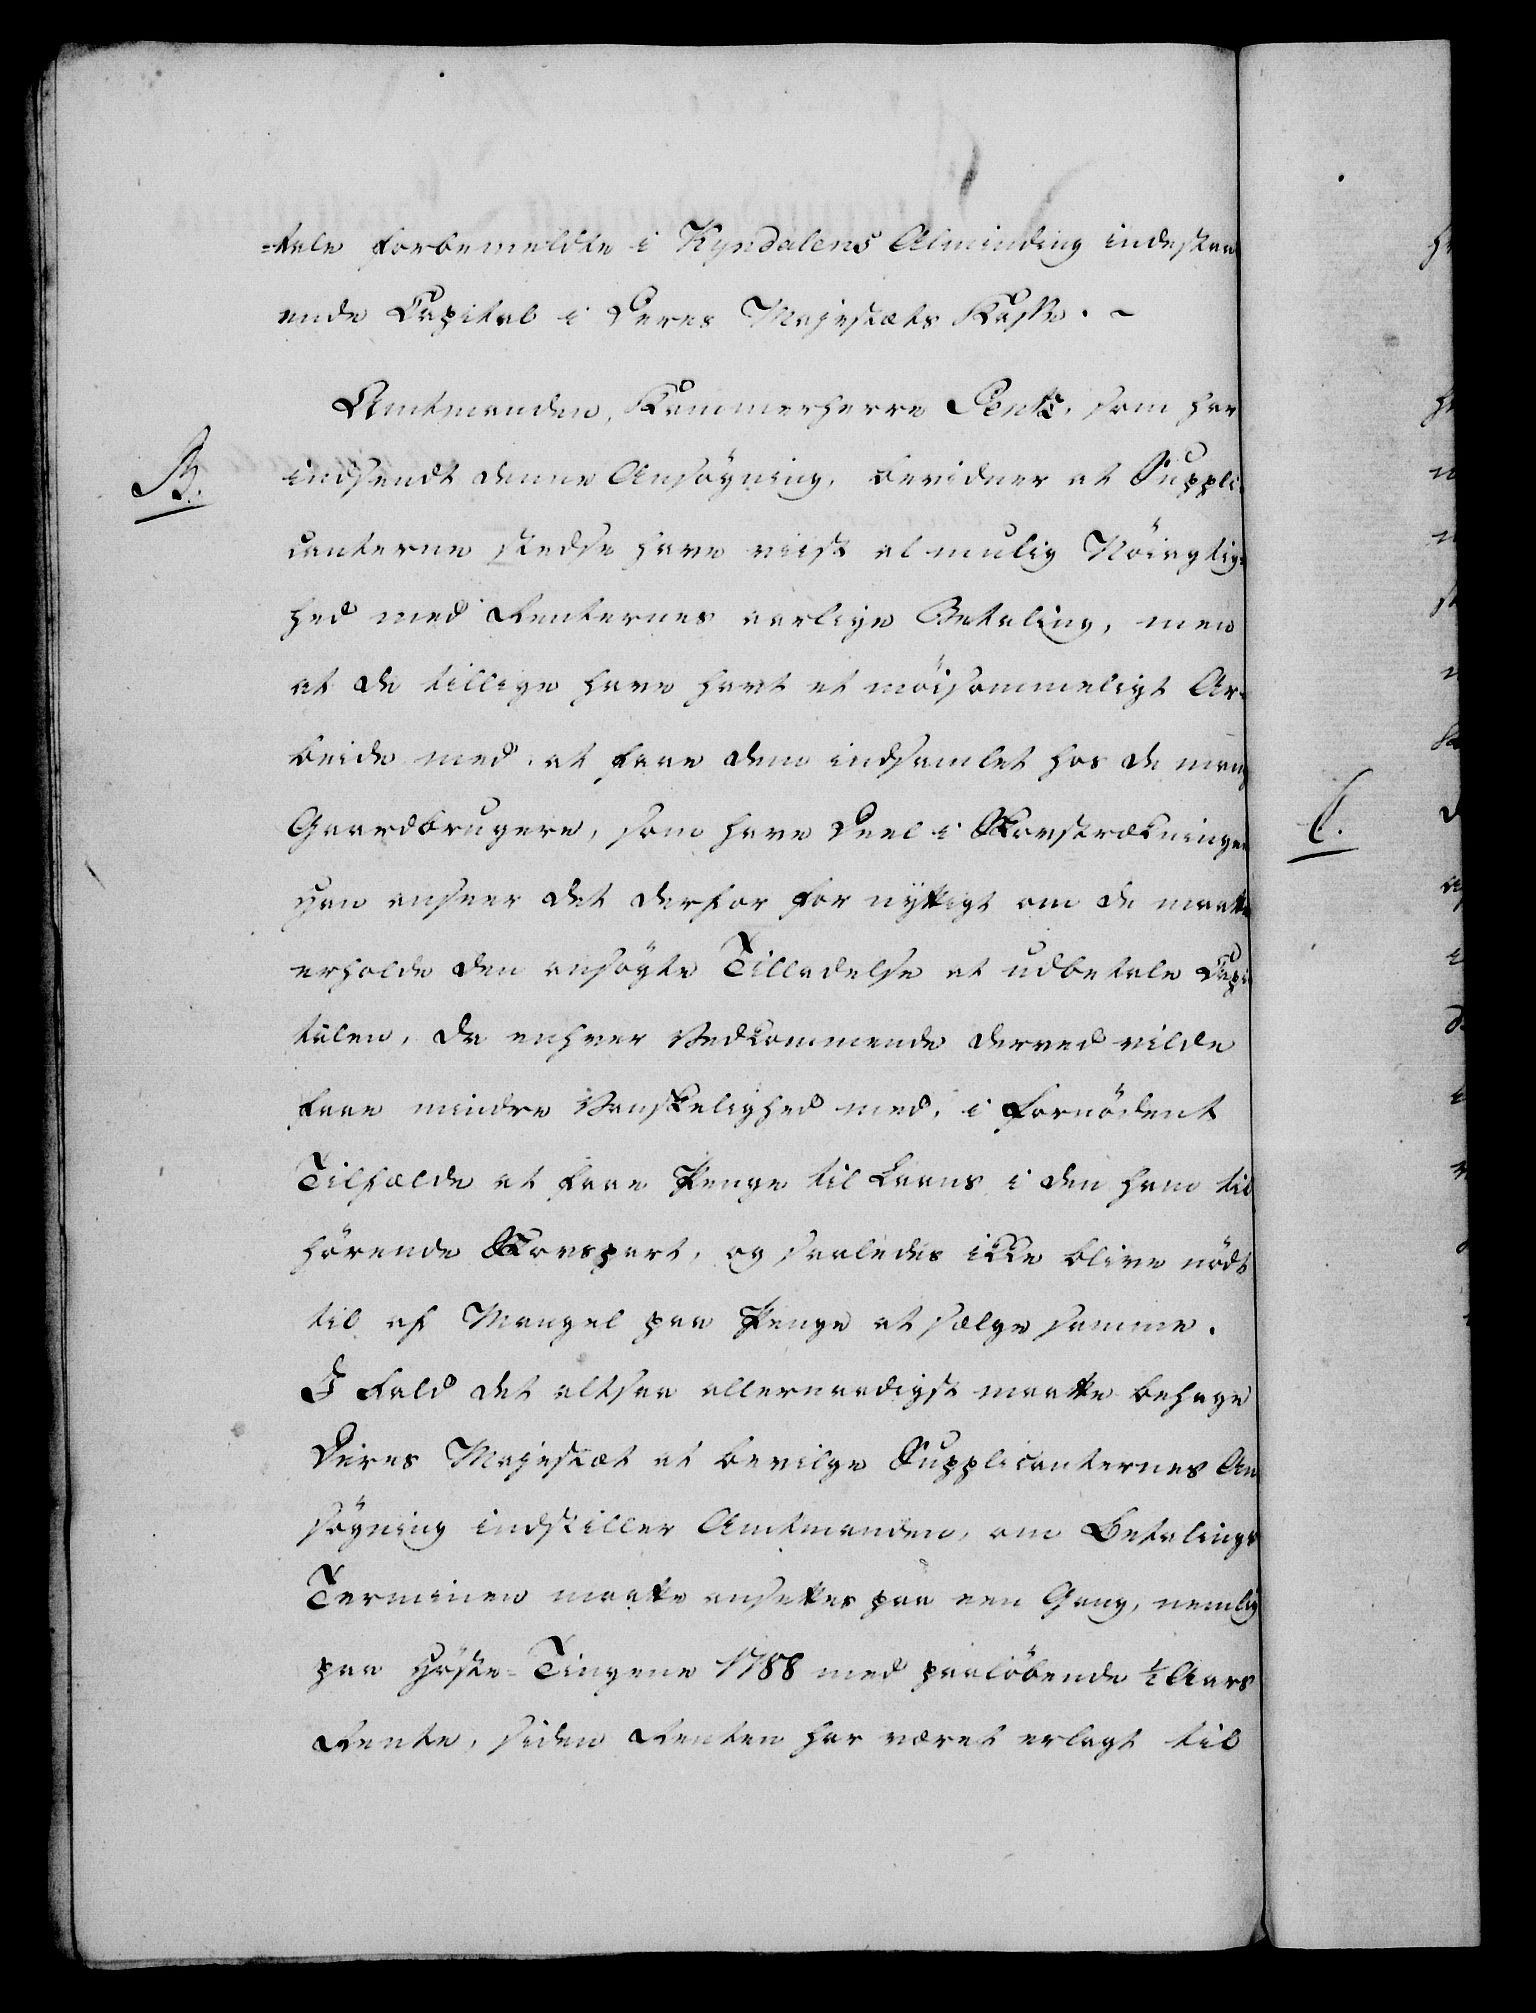 -tale forbemeldte i Kyrdalens Alminding indestaa
ende Capital i Deres Majestæts Kasse. ~
Amtmanden, Kammerherre Pentz, som har
B.
indsendt denne Ansøgning, bevidner at Suppli-
canterne stedse have viist al mulig Nöiagtig-
hed med Renternes aarlige Betaling, men
at de tillige have havt et möisommeligt Ar-
beide med, at faae dem indsamlet hos de mang
Gaardbrugere, som have Deel i Skovstrækningen
Han anseer det derfor for nyttigt om de maatte
erholde den ansögte Tilladelse at udbetale Capi
talen, da enhver Vedkommende derved vilde
faae mindre Vanskelighed med, i fornödent
Tilfælde at faae Penge til Laans i den ham til
hörende Skovspart, og saaledes ikke blive nödt
til af Mangel paa Penge at sælge samme.
I Fald det altsaa allernaadigst maatte behage
Deres Majestæt at bevilge Supplicanternes An
sögning indstiller Amtmanden, om Betalings
Terminen maatte ansettes paa een Gang, nemlig
paa Höste-Tingene 1788 med paalöbende ½ Aars
Rente, siden Renten har været erlagt til
C.